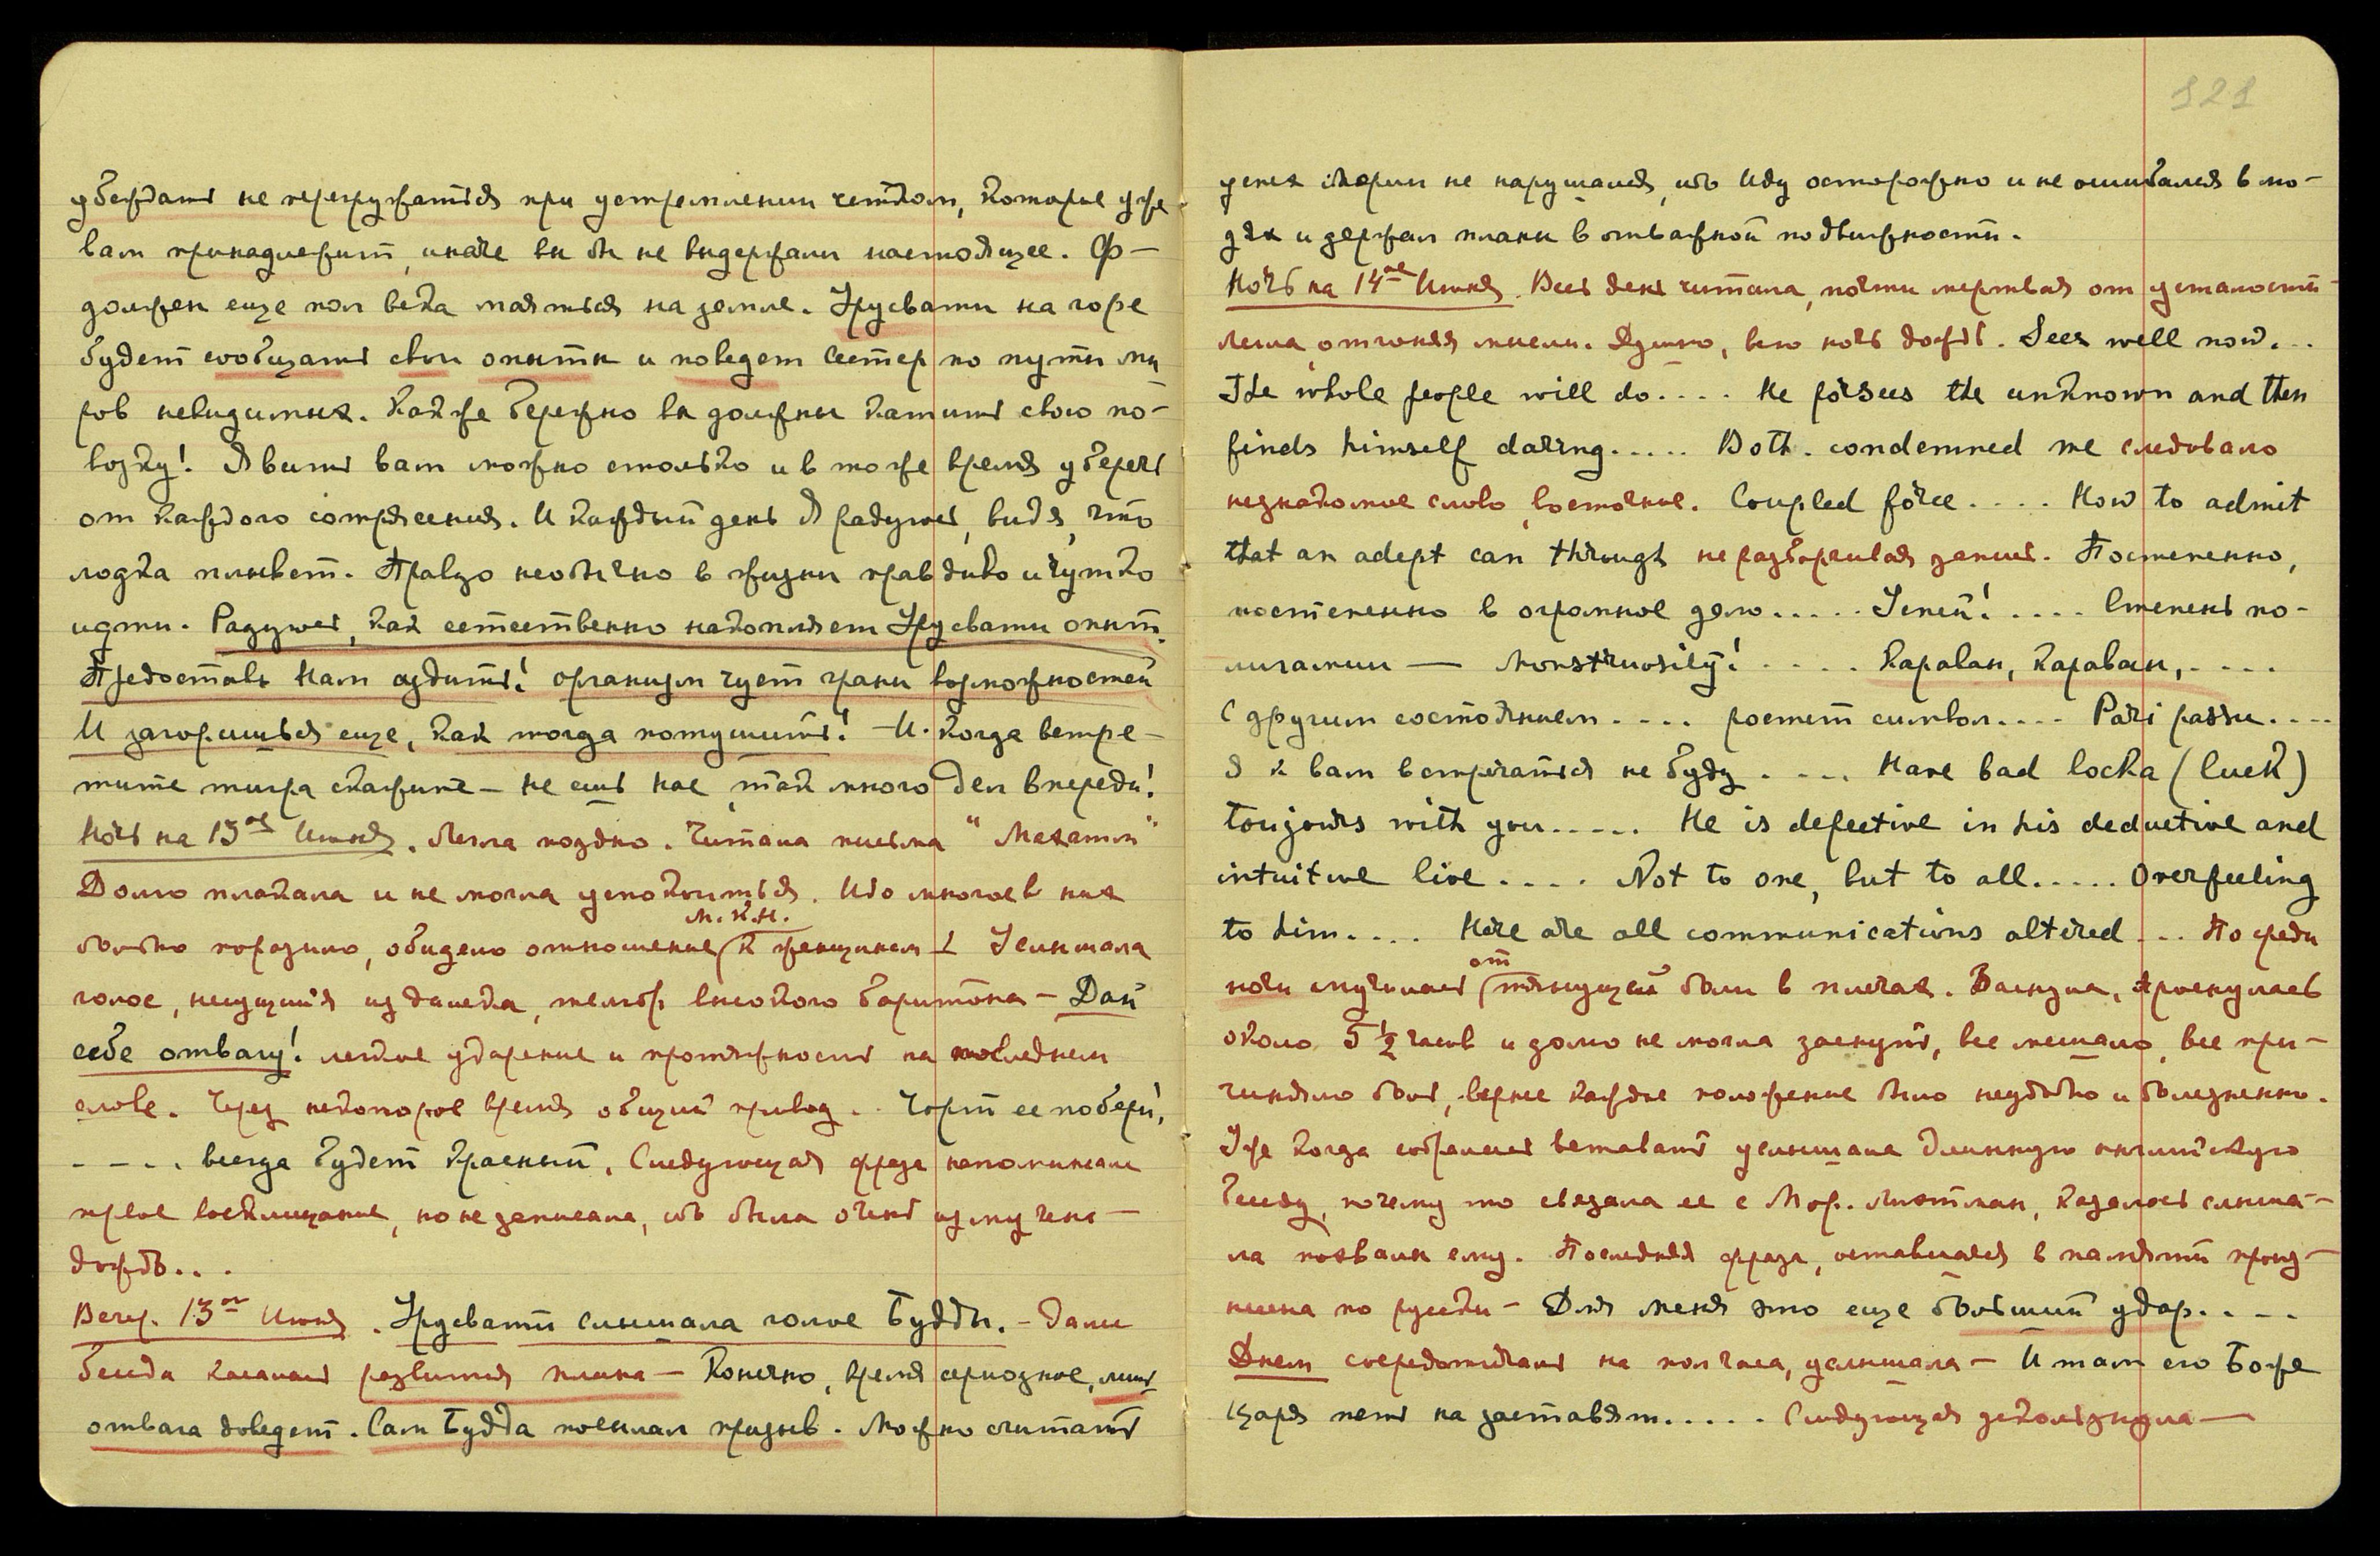 убеждать не перегружаться при устремлении чутком, которое уже
вам принадлежит, иначе вы бы не выдержали настоящее. Ф —
должен еще пол века маяться на земле. Урусвати на горе
будет сообщать свои опыты и поведет Сестер по пути ми
ров невидимых. Как же бережно вы должны катить свою по-
возку! Явить вам можно столько и в тоже время уберечь
от каждого сотрясения. И каждый день Я радуюсь, видя, что
лодка плывет. Право необычно в жизни правдиво и чутко
идти. Радуюсь, как естественно накопляет Урусвати опыт.
Предоставь Нам судить! организм чует грани возможностей
И загоришься еще, как тогда потушить! — И когда встре-
тите тигра скажите — не ешь нас, так много дел впереди!
Ночь на 13ое Июня. Легла поздно. Читала письма "Махатм"
Долго плакала и не могла успокоиться. Ибо многое в них
больно поразило, обидело отношение М. К.Н. к женщинам. Услышала
голос, несущийся из далека, тембр высокого баритона — Дай
себе отвагу! легкое ударение и протяжность на последнем
слове. Через некоторое время общий привод .. Чорт ее побери!,
- - - . всегда будет красный. Следующая фраза напоминала
первое восклицание, но не записала, ибо была очень измучена —
дождь. . .
Вечер. 13ое Июня. Урусвати слышала голос Будды. — Дали
беседа касалась развития плана — Конечно, время серьозное, лишь
отвага доведет. Сам Будда посылал призыв. Можно считать
121
успех Матери не нарушался, ибо Иду осторожно и не ошибался в лю-
дях и держал планы в отважной подвижности.
Ночь на 14ое Июня. Весь день читала, почти мертвая от усталости
легла, отгоняя мысли. Душно, всю ночь дождь. Sees well now. . .
The whole people will do. . . . He forsees the unknown and then
finds himself daring. . . . . Both. condemned me следовало
незнакомое слово, восточное. Coupled force . . . . How to admit
that an adept can through неразборчивая запись. Постепенно,
постепенно в огромное дело . . . . . Успей! . . . . Степень по-
лигамии — Monstruosity! . . . . Караван, Караван, . . . .
С другим состоянием . . . . растет символ. . . . Pari passu. . . .
Я к вам встречаться не буду . . . . Have bad locka (luck)
toujours with you . . . . . He is defective in his deductive and
intuitive live . . . . Not to one, but to all . . . . . Overfeeling
to him. . . . Here are all communications altered . . . По среди
ночи мучилась от тянущей боли в плечах. Заснула, проснулась
около 5 1/2 часов и долго не могла заснуть, все мешало, все при-
чиняло боль, вернее каждое положение было неудобно и болезненно.
Уже когда собралась вставать услышала длинную английскую
беседу, почему то связала ее с Мор. Лихтман, казалось слыша-
ла похвалы ему. Последняя фраза, оставшаяся в памяти произ-
несена по русски — Для меня это еще больший удар. . . .
Днем сосредоточась на пол часа, услышала — И там его Боже
Царя петь на заставят. . . . . Следующая ускользнула —